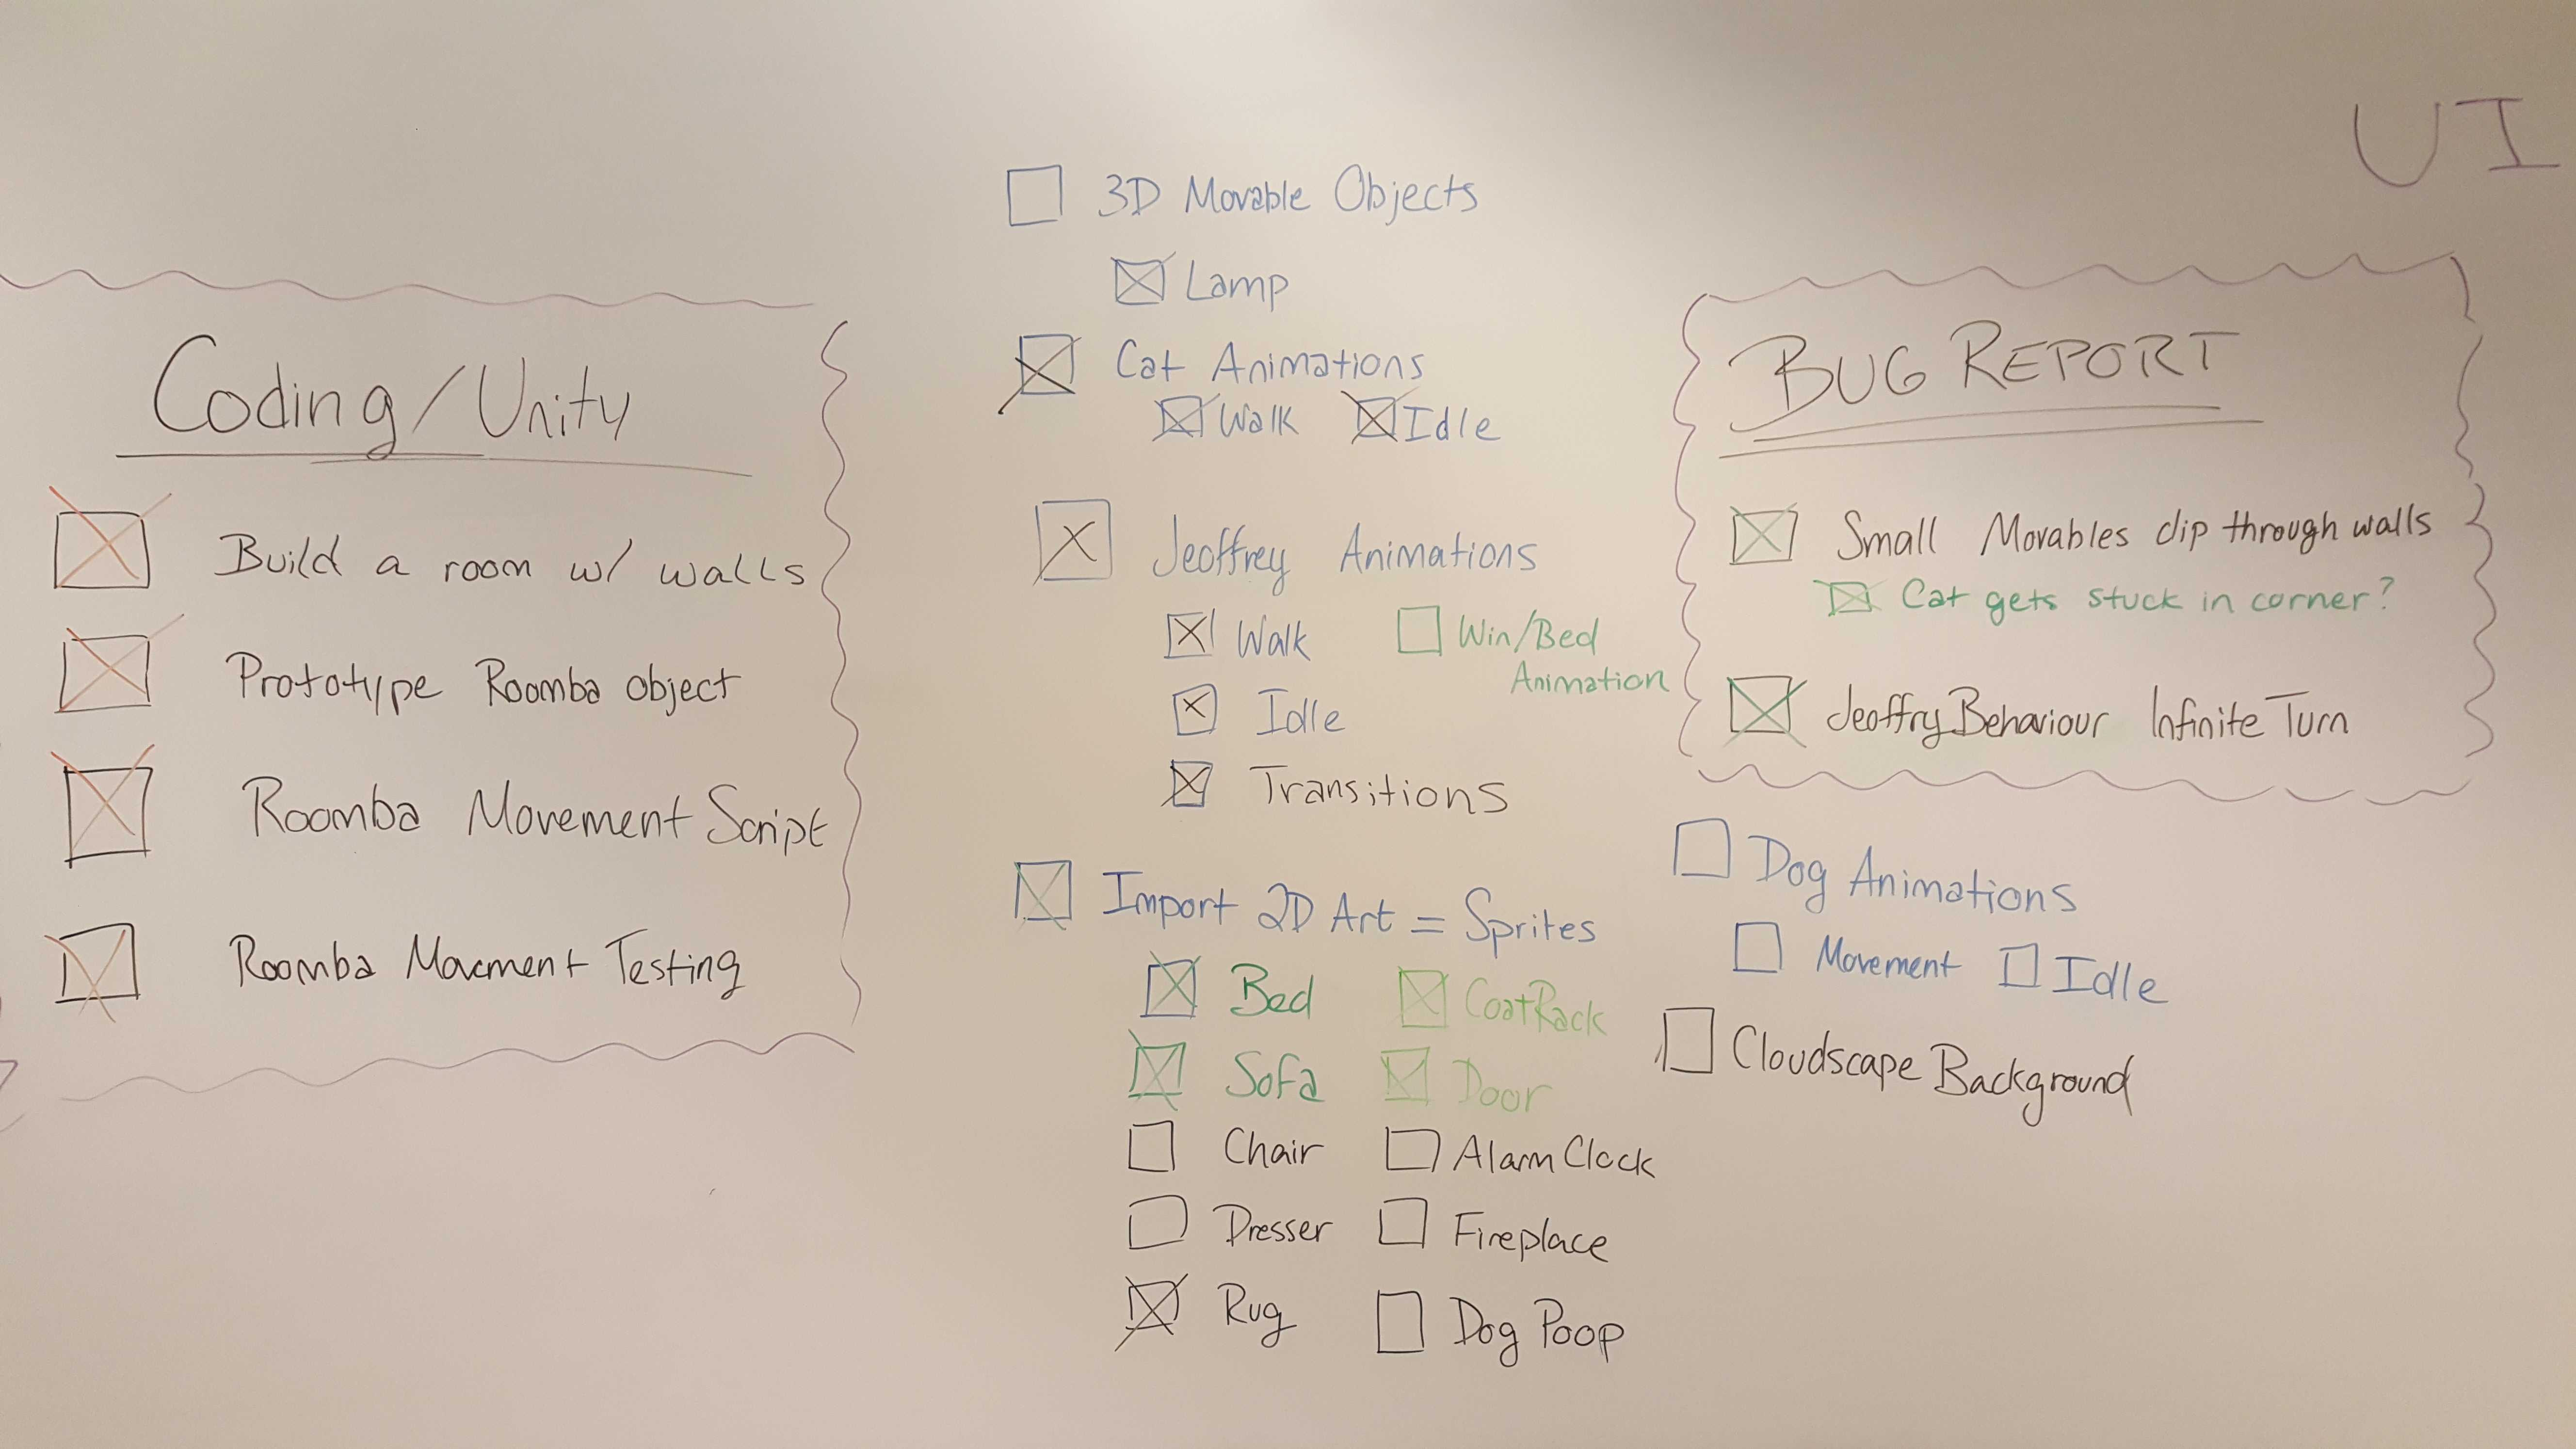 UI
Coding/Unity
Build a room w/ walls
Prototype Roomba object
Roomba Movement Script
Roomba Movement Testing
3D Movable Objects
Lamp
Cat Animations
Walk Idle
Jeoffrey Animations
Walk Win/Bed
Animation
Idle
Transitions
Import 2D Art = Sprites
Bed CoatRack
Sofa Door
Chair Alarm Clock
Dresser Fireplace
Rug Dog Poop
BUG REPORT
Small Movables clip through walls
Cat gets stuck in corner?
Jeoffry Behaviour Infinite Turn
Dog Animations
Movement Idle
Cloudscape Background